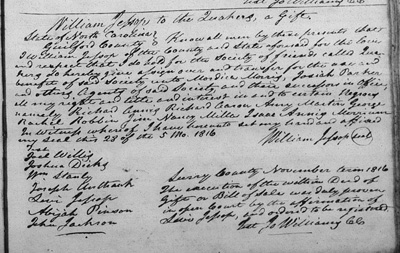 Test Jo Williams CC
William Jessop to the Quakers, a Gift.
State of North Carolina
Guilford County Know all men by these presents that
I William Jessop of the County and State aforesaid for the love
and respect that I do hold for the Society of friends called Qua-
kers do hereby give assign over and transfer for the use and
benefit of said Society unto Mordica Morris, Josiah Parker
and other Agents of said Society and their successors in office,
all my right and title and interest in and to certain Negroes
namely Richard Aaron Amy Martin George
Rachel Jim Nancy Miller Isaac
In Witness whereof I have hereunto set my hand and affixed
my seal this 23 of the 5 Mo. 1816
Test William Jessop seal
Joel Willis
Joshua Dicks
Wm Stanly
Joseph
Levi Jessop
Abijah Pinson
John Jackson
Surry County November term 1816
The execution of the within Deed of
Gift or Bill of Sale was duly proven
in open Court by the affirmation of
Levi Jessop, and ordered to be registered.
Test Jo Williams CC